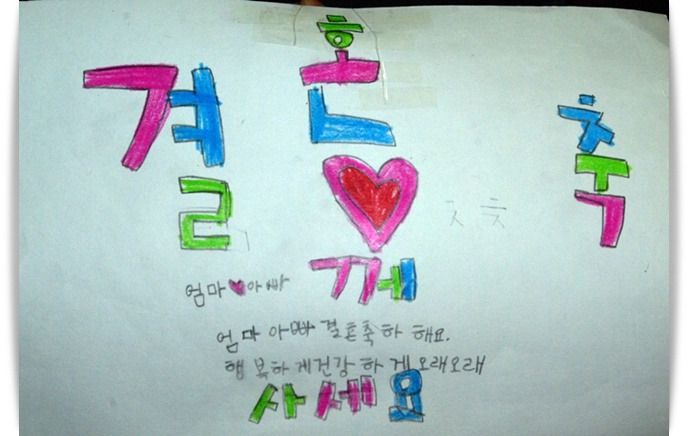 결 혼 축
엄마♥아빠 께
엄마 아빠 결혼축하 해요.
행복하게건강 하게 오래오래
사세요